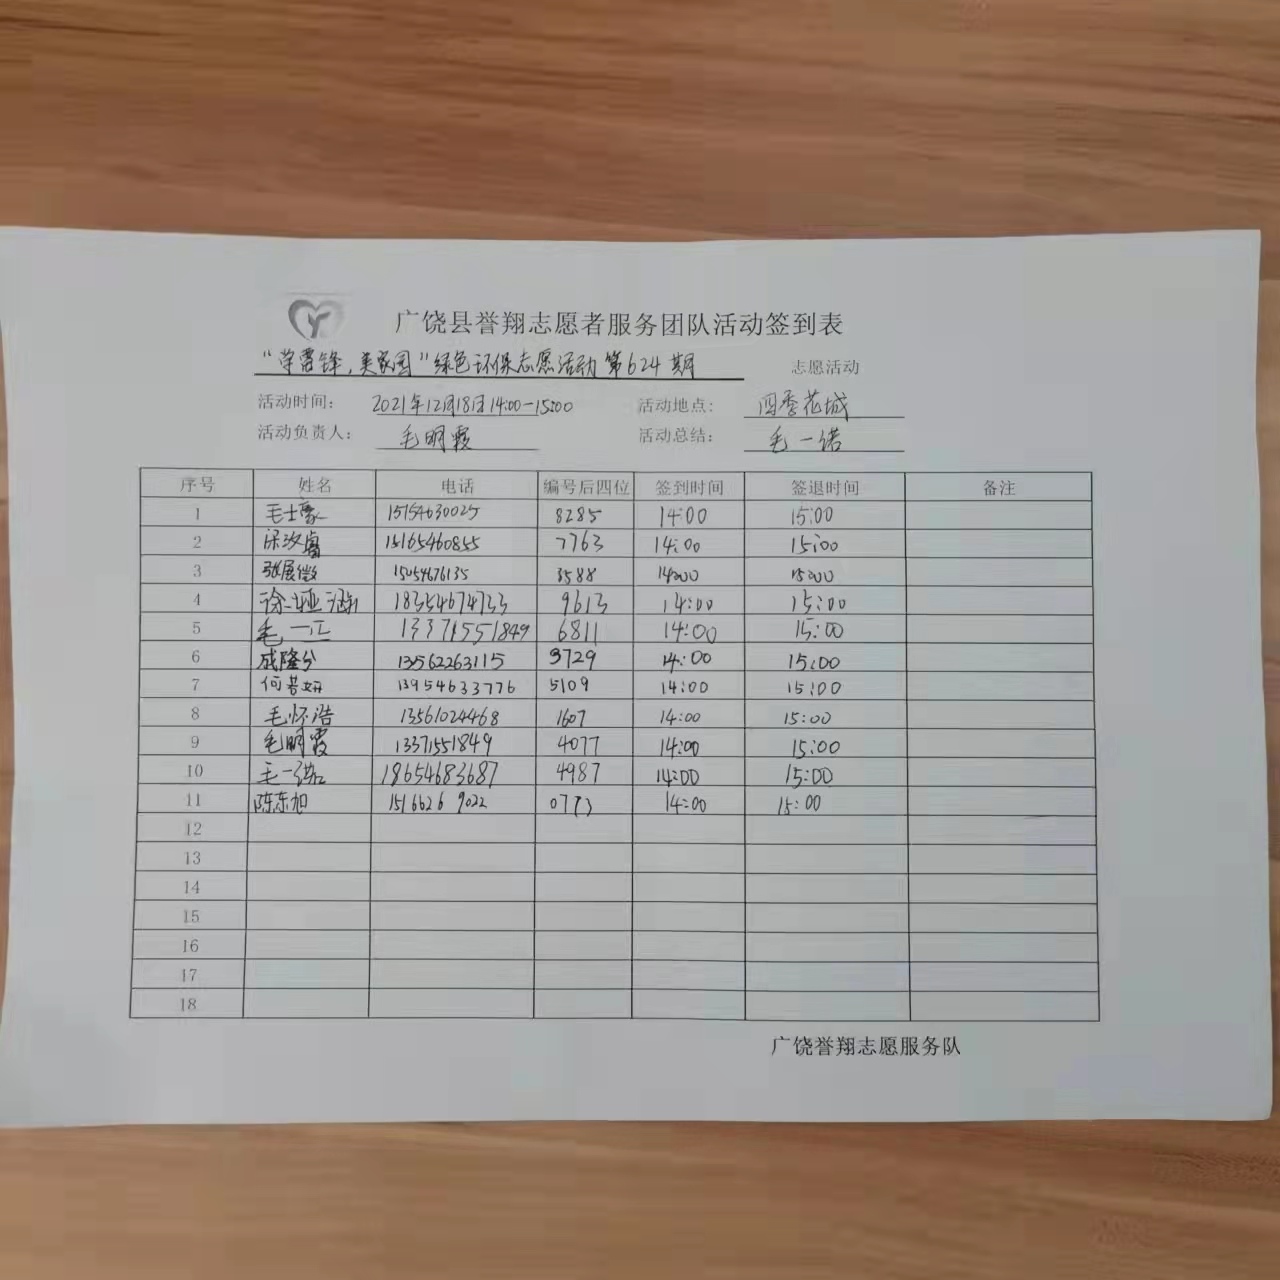 广饶县誉翔志愿者服务团队活动签到表
“学雷锋，美家园”绿色环保志愿活动第624期 志愿活动
活动时间： 2021年12月18日14:00-15:00 活动地点： 四季花城
活动负责人： 毛明霞 活动总结： 毛一诺
序号 姓名 电话 编号后四位 签到时间 签退时间 备注
1 毛士豪 15154630025 8285 14:00 15:00
2 梁汝睿 15165460855 7763 14:00 15:00
3 张展微 15054676135 3588 14:00 15:00
4 徐垭涵 18354674733 9613 14:00 15:00
5 毛一江 13371551849 6811 14:00 15:00
6 成隆兮 13562263115 3729 14:00 15:00
7 何若妍 13954633776 5109 14:00 15:00
8 毛怀浩 13561024468 1607 14:00 15:00
9 毛明霞 13371551849 4077 14:00 15:00
10 毛一诺 18654683687 4987 14:00 15:00
11 陈东旭 1516626 9022 0773 14:00 15:00
12
13
14
15
16
17
18
广饶誉翔志愿服务队